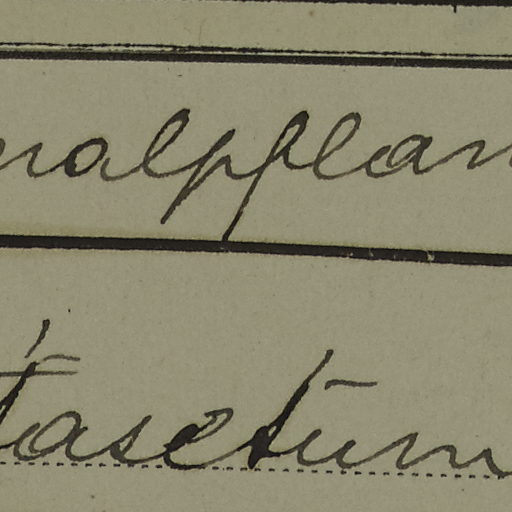 nalpflan
tasetum